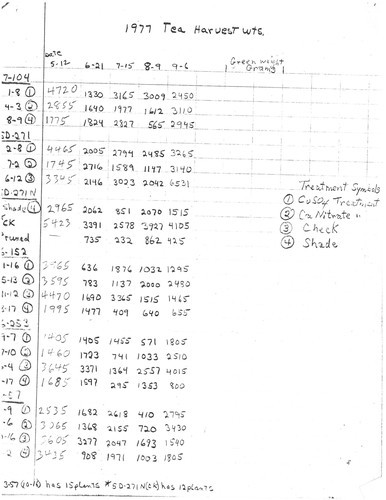 1977 Tea Harvest wts.
Date
5-12 6-21 7-15 8-9 9-6 Green weight Grams
7-104
1-8 ① 4720 1330 3165 3009 2450
4-3 ② 2855 1640 1977 1612 3110
8-9 ④ 1775 1824 2827 565 2945
SD-271
2-8 ① 4465 2005 2794 2485 3265
7-2 ② 1745 2716 1589 1147 3140
6-12 ③ 3345 2146 3023 2042 6531
SD-271N
Treatment Symbols
Shade ④ 2965 2062 851 2070 1515
① CuSO4 Treatment
CK 5423 3391 2578 3927 4105
② Ca Nitrate "
Pruned — 735 232 862 425
③ Check
④ Shade
-152
1-16 ① 636 1876 1032 1295
5-13 ② 3595 783 1137 2000 2480
11-12 ③ 4470 1690 3365 1515 1465
-17 ④ 1995 1477 409 640 655
-253
9-7 ① 1405 1405 1455 571 1805
7-10 ② 1460 1723 741 1033 2510
-4 ③ 3645 3371 1364 2557 4015
-17 ④ 1685 1597 295 1353 800
-57
-9 ① 2535 1682 2618 410 2745
-6 ② 1368 2155 720 3430
1-16 ③ 3605 3277 2047 1693 1540
-2 ④ 3435 908 1971 1003 1805
357(10-16) has 15 plants * SD-271N(CK) has 12 plants